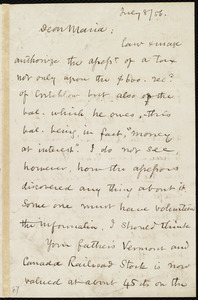 July 8/56.
Dear Maria;
Law & usage
authorize the assessm.t of a tax
not only upon the $600 rec.d
of Critchlow but also of the
bal. which he owes, this
bal. being, in fact, "money
at interest". I do not see,
however, how the assessors
discovered any thing about it.
Some one must have volunteered
the information, I should think
Your father's Vermont and
Canada Railroad Stock is now
valued at about 45 dls on the